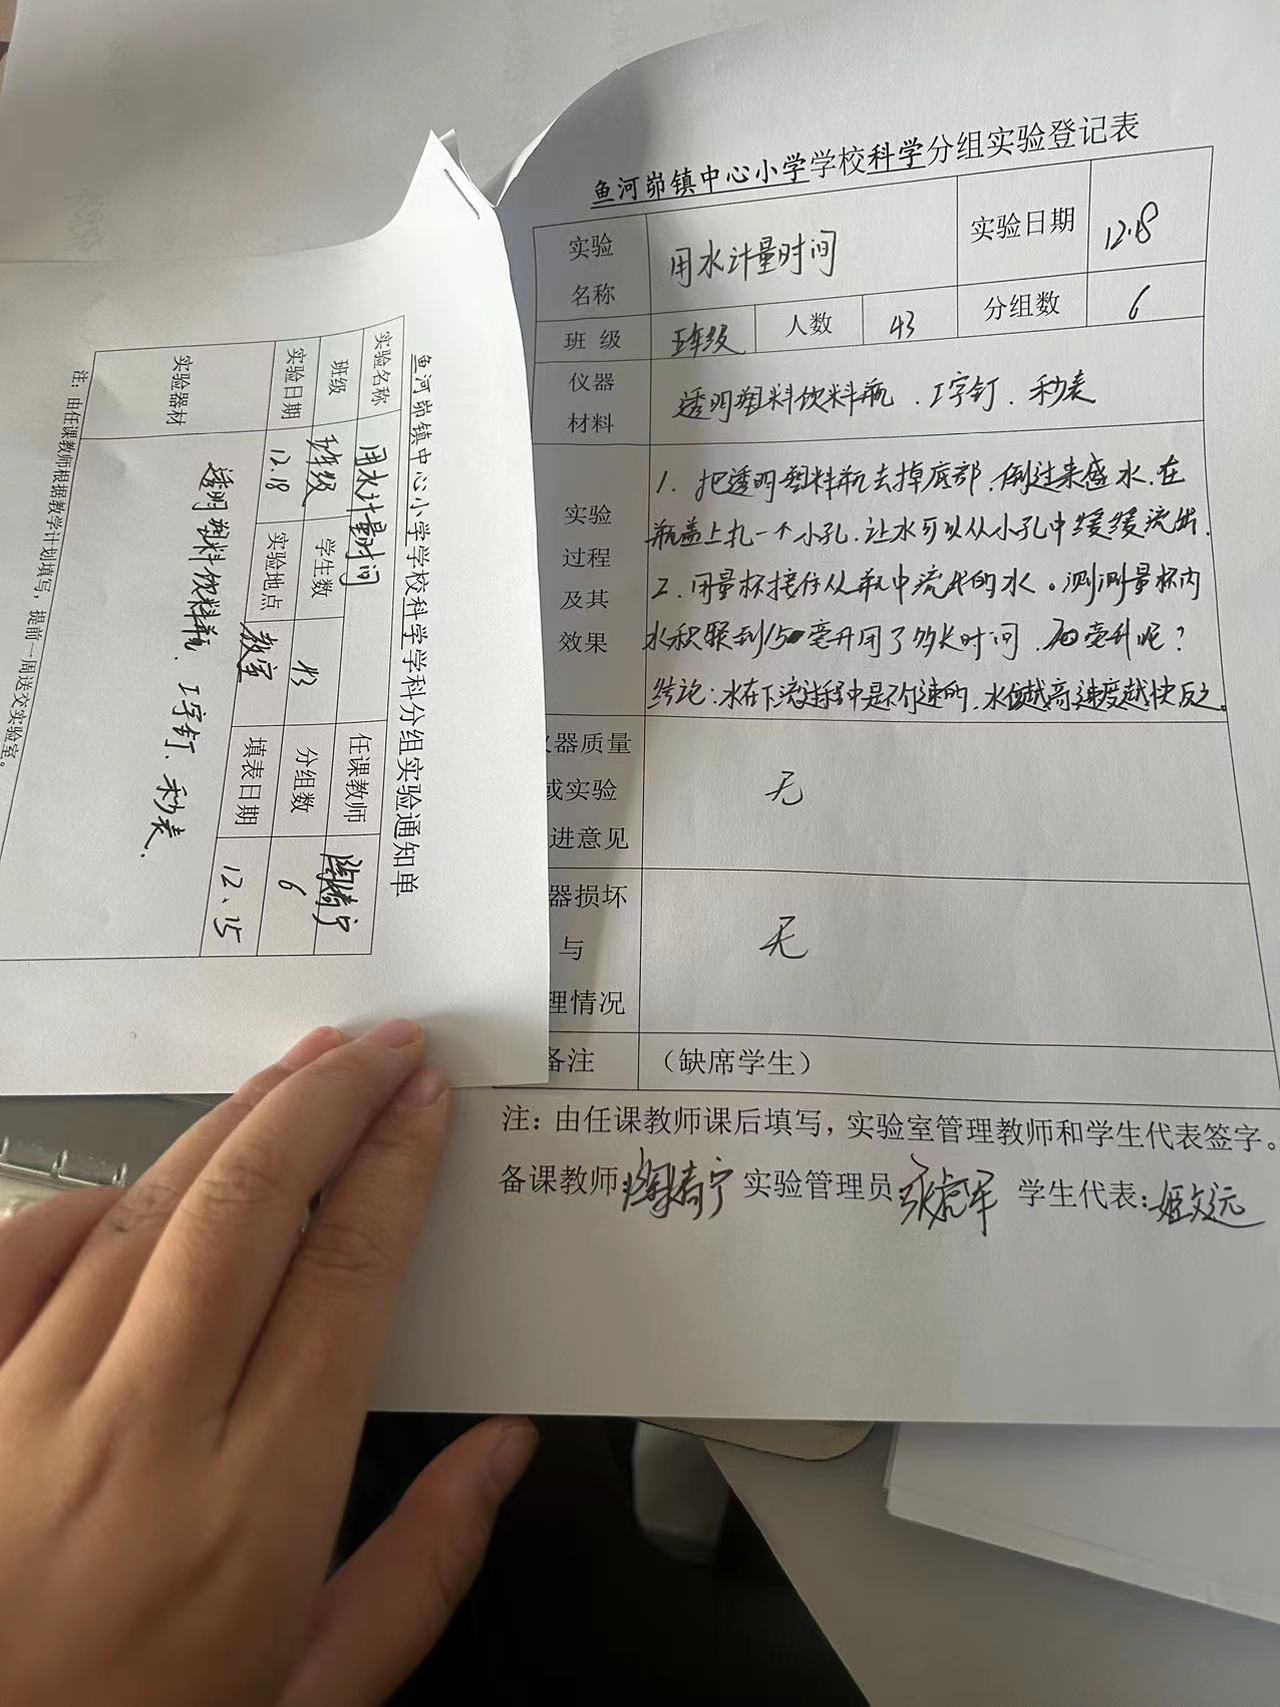 鱼河峁镇中心小学学校科学分组实验登记表
实验名称 用水计量时间 实验日期 12.18
班 级 五年级 人数 43 分组数 6
仪器材料 透明塑料饮料瓶、工字钉、秒表
实验过程及其效果
1. 把透明塑料瓶去掉底部,倒过来盛水,在
瓶盖上扎一个小孔,让水可以从小孔中缓缓流出.
2. 用量杯接住从瓶中流出的水。测测量杯内
水积聚到 毫升用了多长时间, 毫升呢?
结论:水在下流过程中是不匀速的,水位越高速度越快反之
器质量
或实验
进意见
无
器损坏
与
理情况
无
备注 (缺席学生)
注:由任课教师课后填写,实验室管理教师和学生代表签字。
备课教师: 实验管理员 张虎军 学生代表:姬文远
鱼河峁镇中心小学学校科学学科分组实验通知单
实验名称 用水计量时间 任课教师
班级 五年级 学生数 43 分组数 6
实验日期 12.18 实验地点 教室 填表日期 12.15
实验器材 透明塑料饮料瓶、工字钉、秒表.
注:由任课教师根据教学计划填写,提前一周送交实验室。